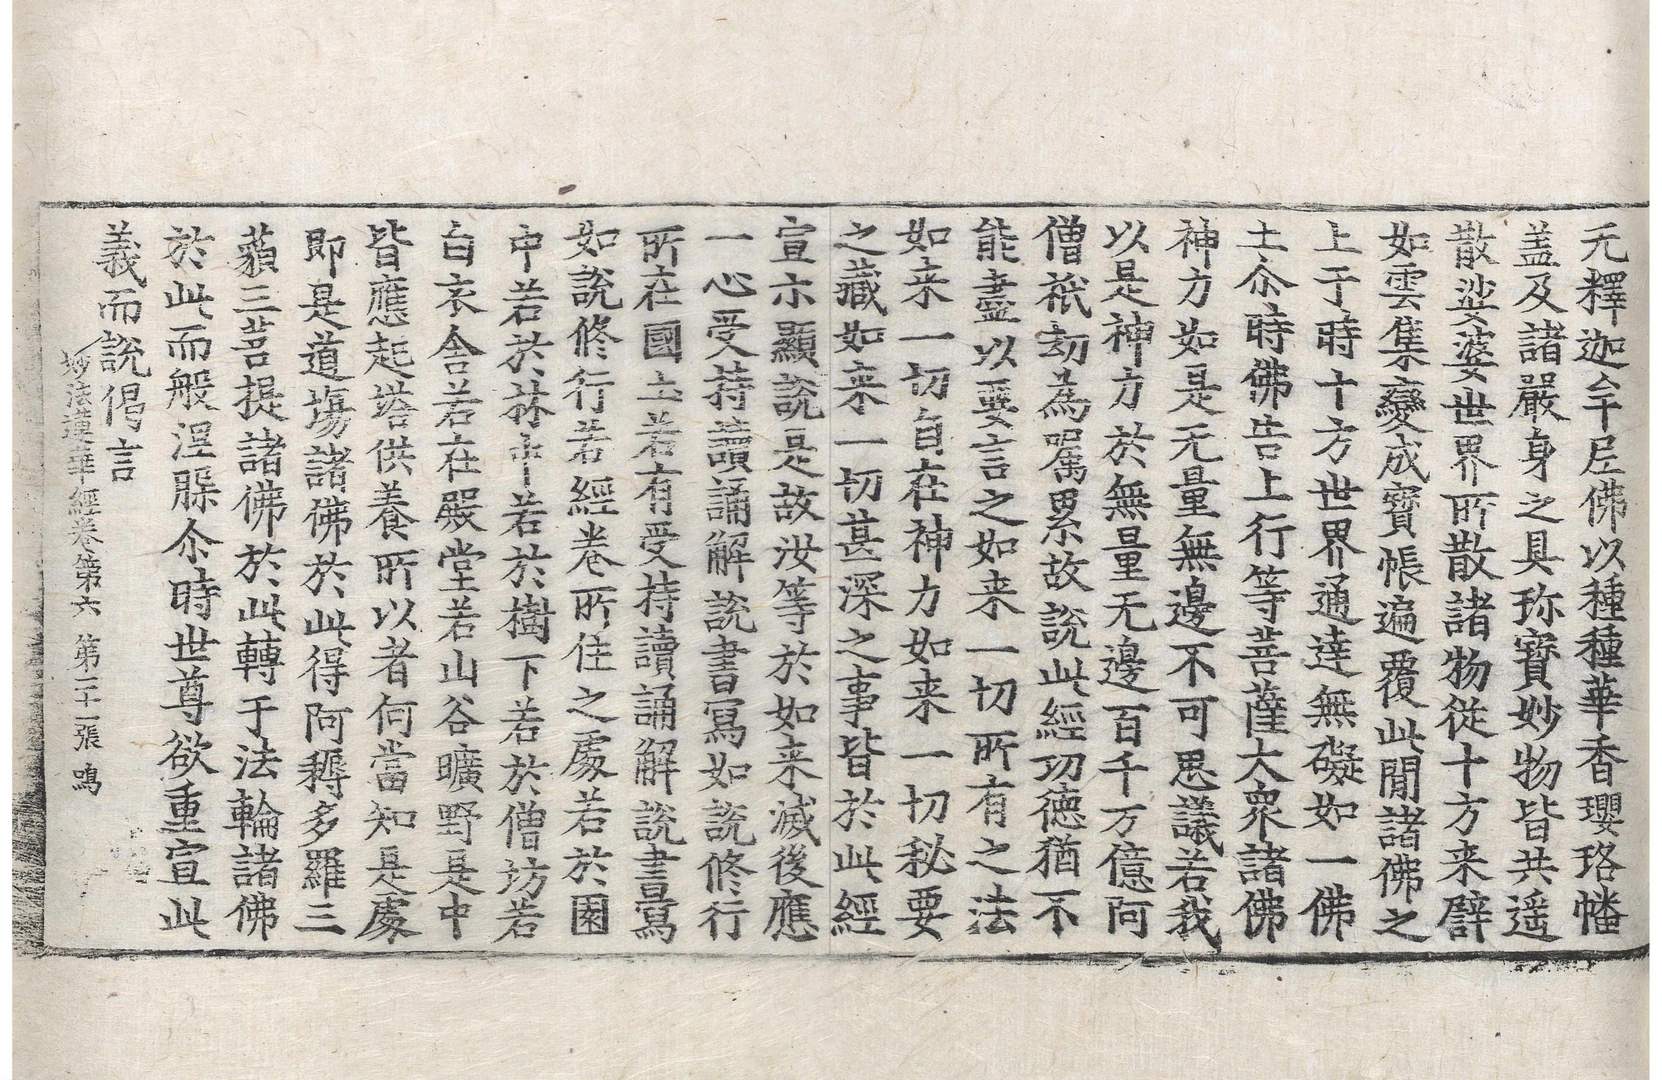 无釋迦牟尼佛以種種華香瓔珞幡
盖及諸嚴身之具珎寶妙物皆共遥
散娑婆世界所散諸物從十方来譬
如雲集變成寳帳遍覆此間諸佛之
上于時十方世界通達無礙如一佛
土尒時佛告上行等菩薩大衆諸佛
神力如是无量無邊不可思議若我
以是神力於無量无邊百千万億阿
僧祇劫為嘱累故說此經功德猶不
能盡以要言之如来一切所有之法
如来一切自在神力如来一切秘要
之藏如来一切甚深之事皆於此經
宣示顯說是故汝等於如来滅後應
一心受持讀誦解說書寫如說修行
所在國土若有受持讀誦解說書寫
如說修行若經卷所住之處若於園
中若於林中若於樹下若於僧坊若
白衣舍若在殿堂若山谷曠野是中
皆應起塔供養所以者何當知是處
即是道塲諸佛於此得阿耨多羅三
藐三菩提諸佛於此轉于法輪諸佛
於此而般涅槃尒時世尊欲重宣此
義而說偈言
妙法蓮華經卷第六 第二十一張 鳴